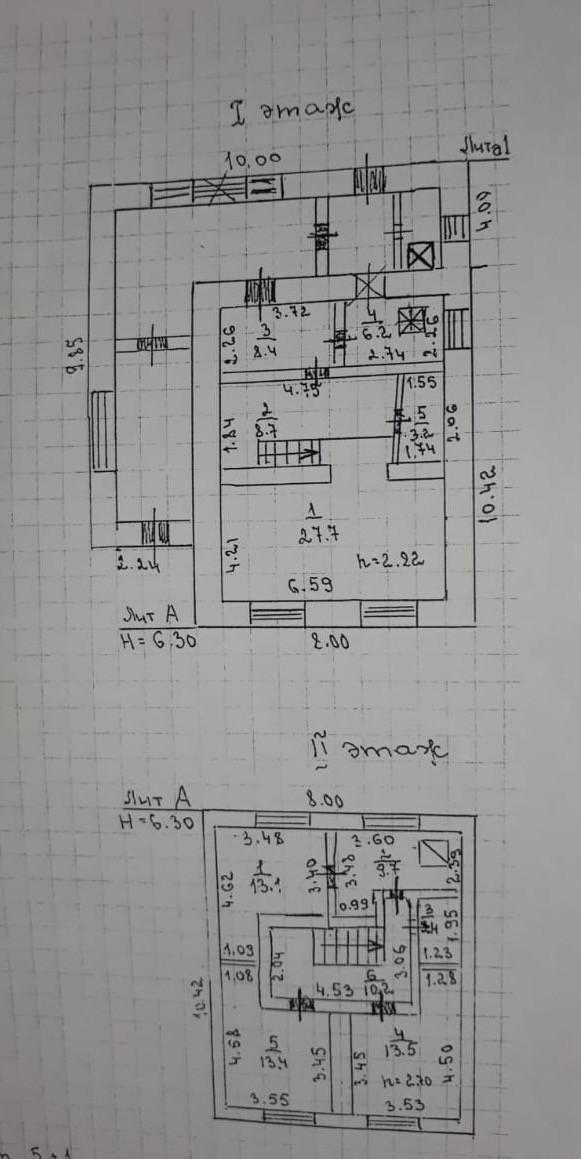 I этаж
Лит а1
10.00
4.00
3.72
3
8.4
2.26
4
6.2
2.74
2.26
9.85
4.79
1.55
2
8.7
1.84
5
3.2
1.74
2.06
10.42
1
27.7
4.21
h=2.22
6.59
2.24
Лит А
H=6.30
8.00
II этаж
Лит А
H=6.30
8.00
3.48
2.60
4.62
1
13.1
3.40
3.48
2
9.7
2.39
0.99
3
1.95
1.09
1.08
2.04
3.06
1.23
1.28
4.53
6
10.2
10.42
4.58
5
13.4
3.45
3.45
4
13.5
h=2.70
4.50
3.55
3.53